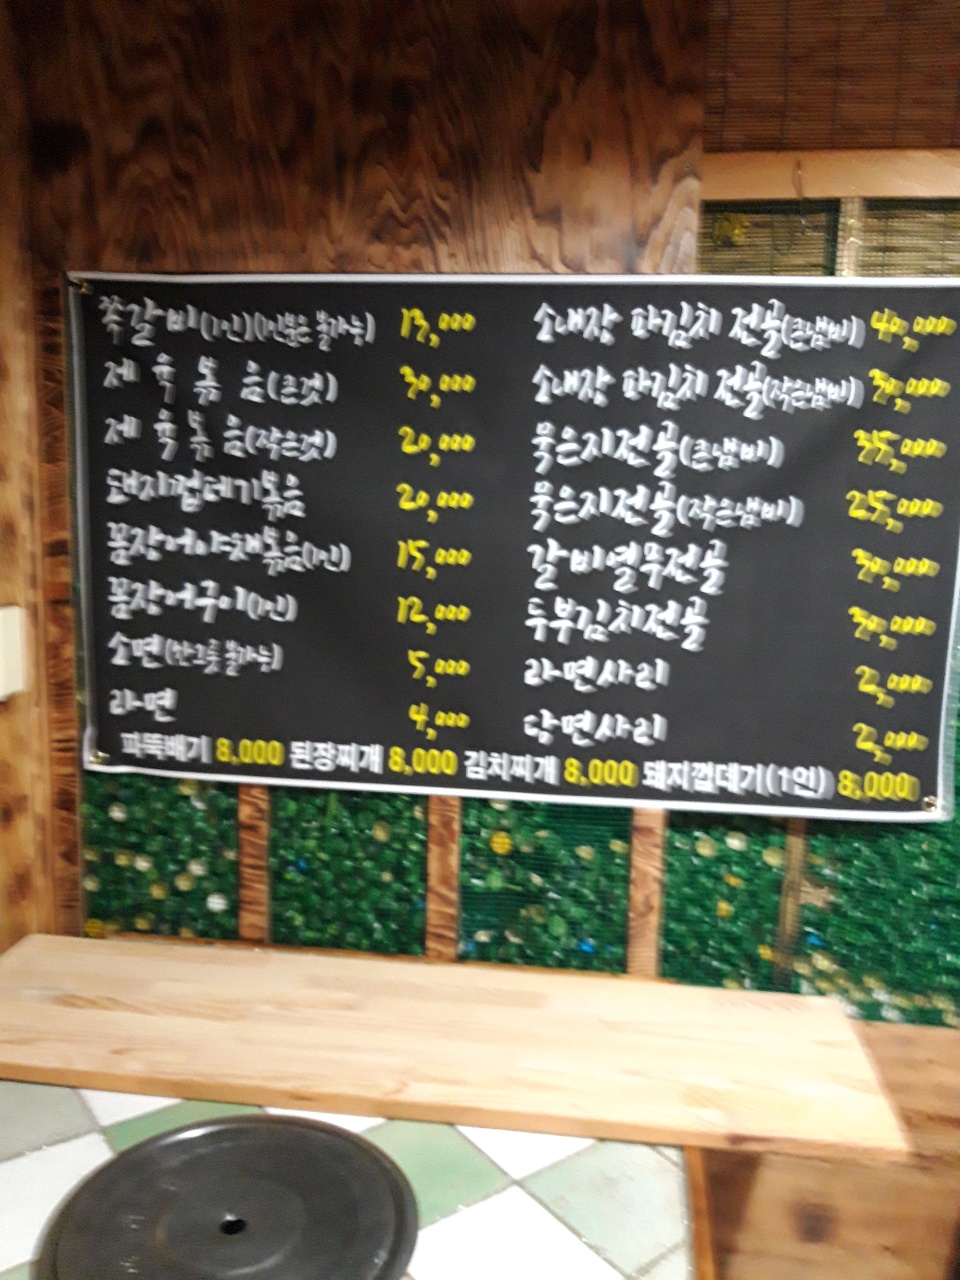 쪽갈비(1인)(1인분은 불가능) 13,000
제육볶음(큰것) 30,000
제육볶음(작은것) 20,000
돼지껍데기볶음 20,000
꼼장어야채볶음(1인) 15,000
꼼장어구이(1인) 12,000
소면(한그릇 불가능) 5,000
라면 4,000
소내장 파김치 전골(큰냄비) 40,000
소내장 파김치 전골(작은냄비) 30,000
묵은지전골(큰냄비) 35,000
묵은지전골(작은냄비) 25,000
갈비열무전골 30,000
두부김치전골 30,000
라면사리 2,000
당면사리 2,000
파뚝배기 8,000 된장찌개 8,000 김치찌개 8,000 돼지껍데기(1인) 8,000